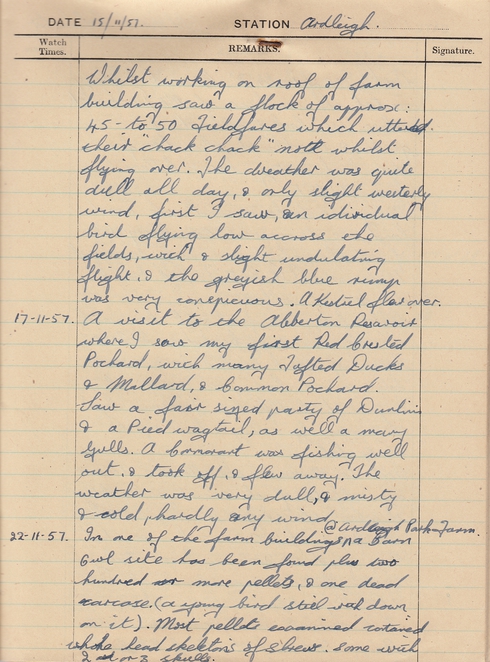 DATE 15/11/57. STATION Ardleigh.
Watch Times. REMARKS. Signature.
Whilst working on roof of farm
building saw a flock of approx:
45-to 50 Fieldfares which uttered
their "chack chack" note whilst
flying over. The weather was quite
dull all day, & only slight westerly
wind, first I saw, an individual
bird flying low accross the
fields, with a slight undulating
flight, & the greyish blue rump
was very conspicuous. A Kestrel flew over.
17-11-57. A visit to the Abberton Resavoir
where I saw my first Red Crested
Pochard, with many Tufted Ducks
& Mallard, & Common Pochard.
Saw a fair sized party of Dunlins
& a Pied wagtail, as well a many
gulls. A Cormorant was fishing well
out, & took off, & flew away. The
weather was very dull, & misty
& cold, hardly any wind.
@ Ardleigh Park Farm.
22-11-57. In one of the farm buildings, a Barn
Owl site has been found plus two
hundred or more pellets, & one dead
carcase. (a young bird still with down
on it). Most pellets examined contained
whole head skeletons of shrews. some with
2 and or 3 skulls.